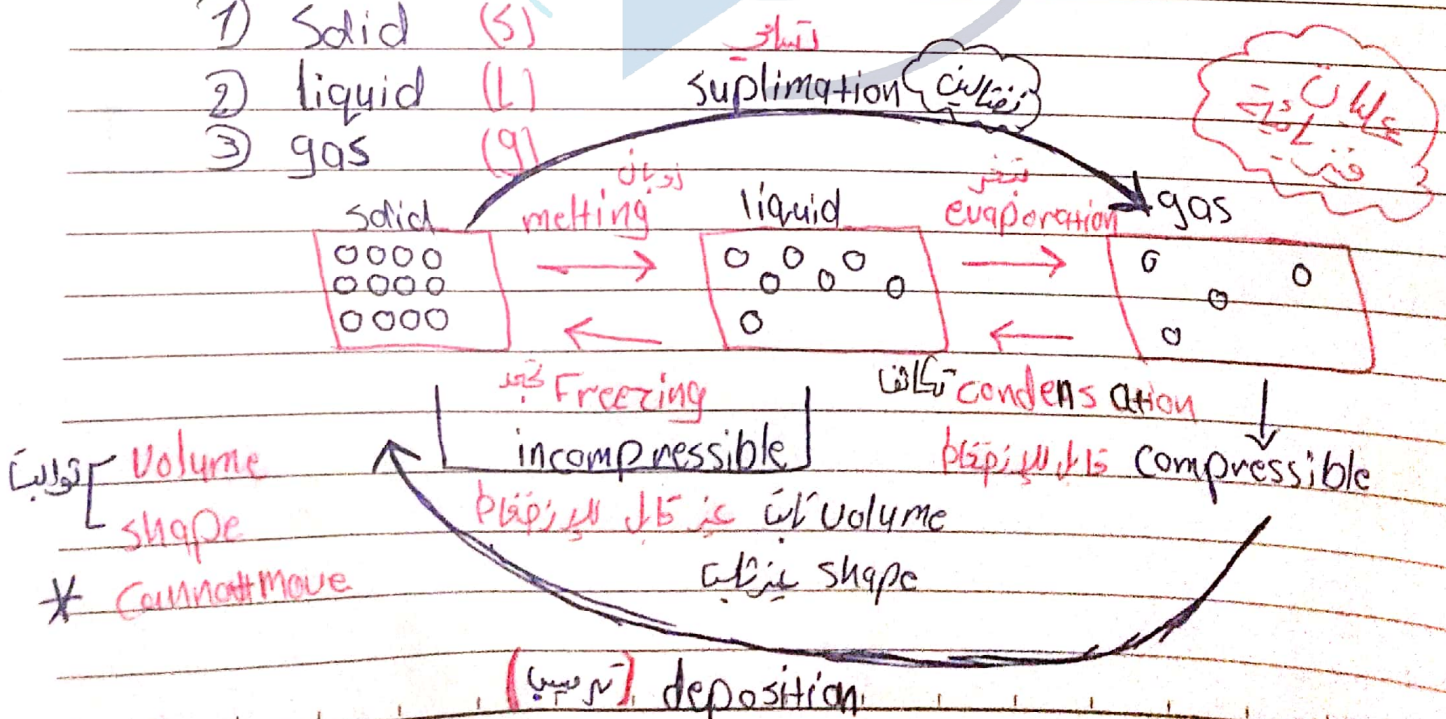 1) Solid (S)
2) liquid (L)
3) gas (g)
تسامي
suplimation نفتالين
عمليات
فيزيائية
solid
ذوبان
melting
liquid
تبخر
evaporation
gas
تجمد Freezing
تكاثف condensation
incompressible
قابل للإنضغاط compressible
ثوابت
Volume
shape
غير قابل للإنضغاط
volume ثابت
shape غير ثابت
* Cannott move
(ترسيب) deposition